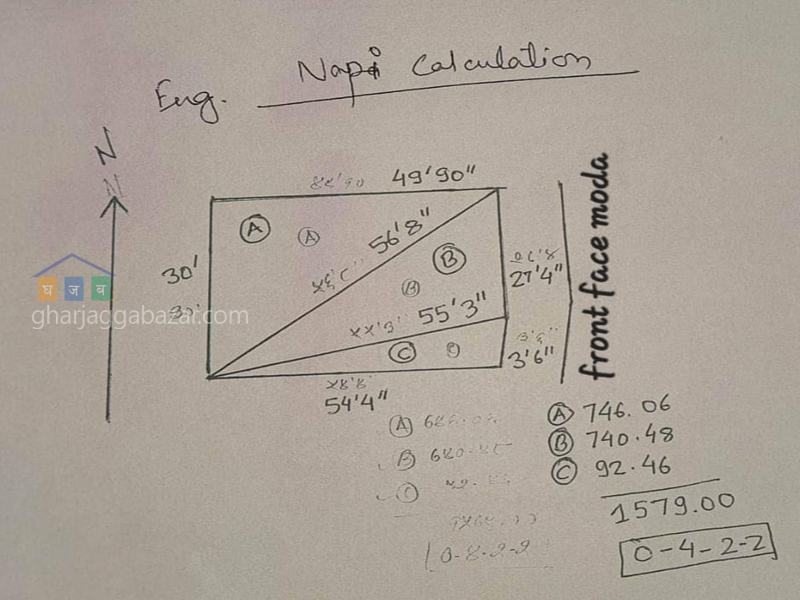 Eng. Napi Calculation
N
49'90"
A
A
56'8"
30'
B
B
27'4"
55'3"
C
3'6"
54'4"
front face moda
घ ज ब
gharjaggabazar.com
A 746.06
B 740.48
C 92.46
1579.00
0-4-2-2
A
B